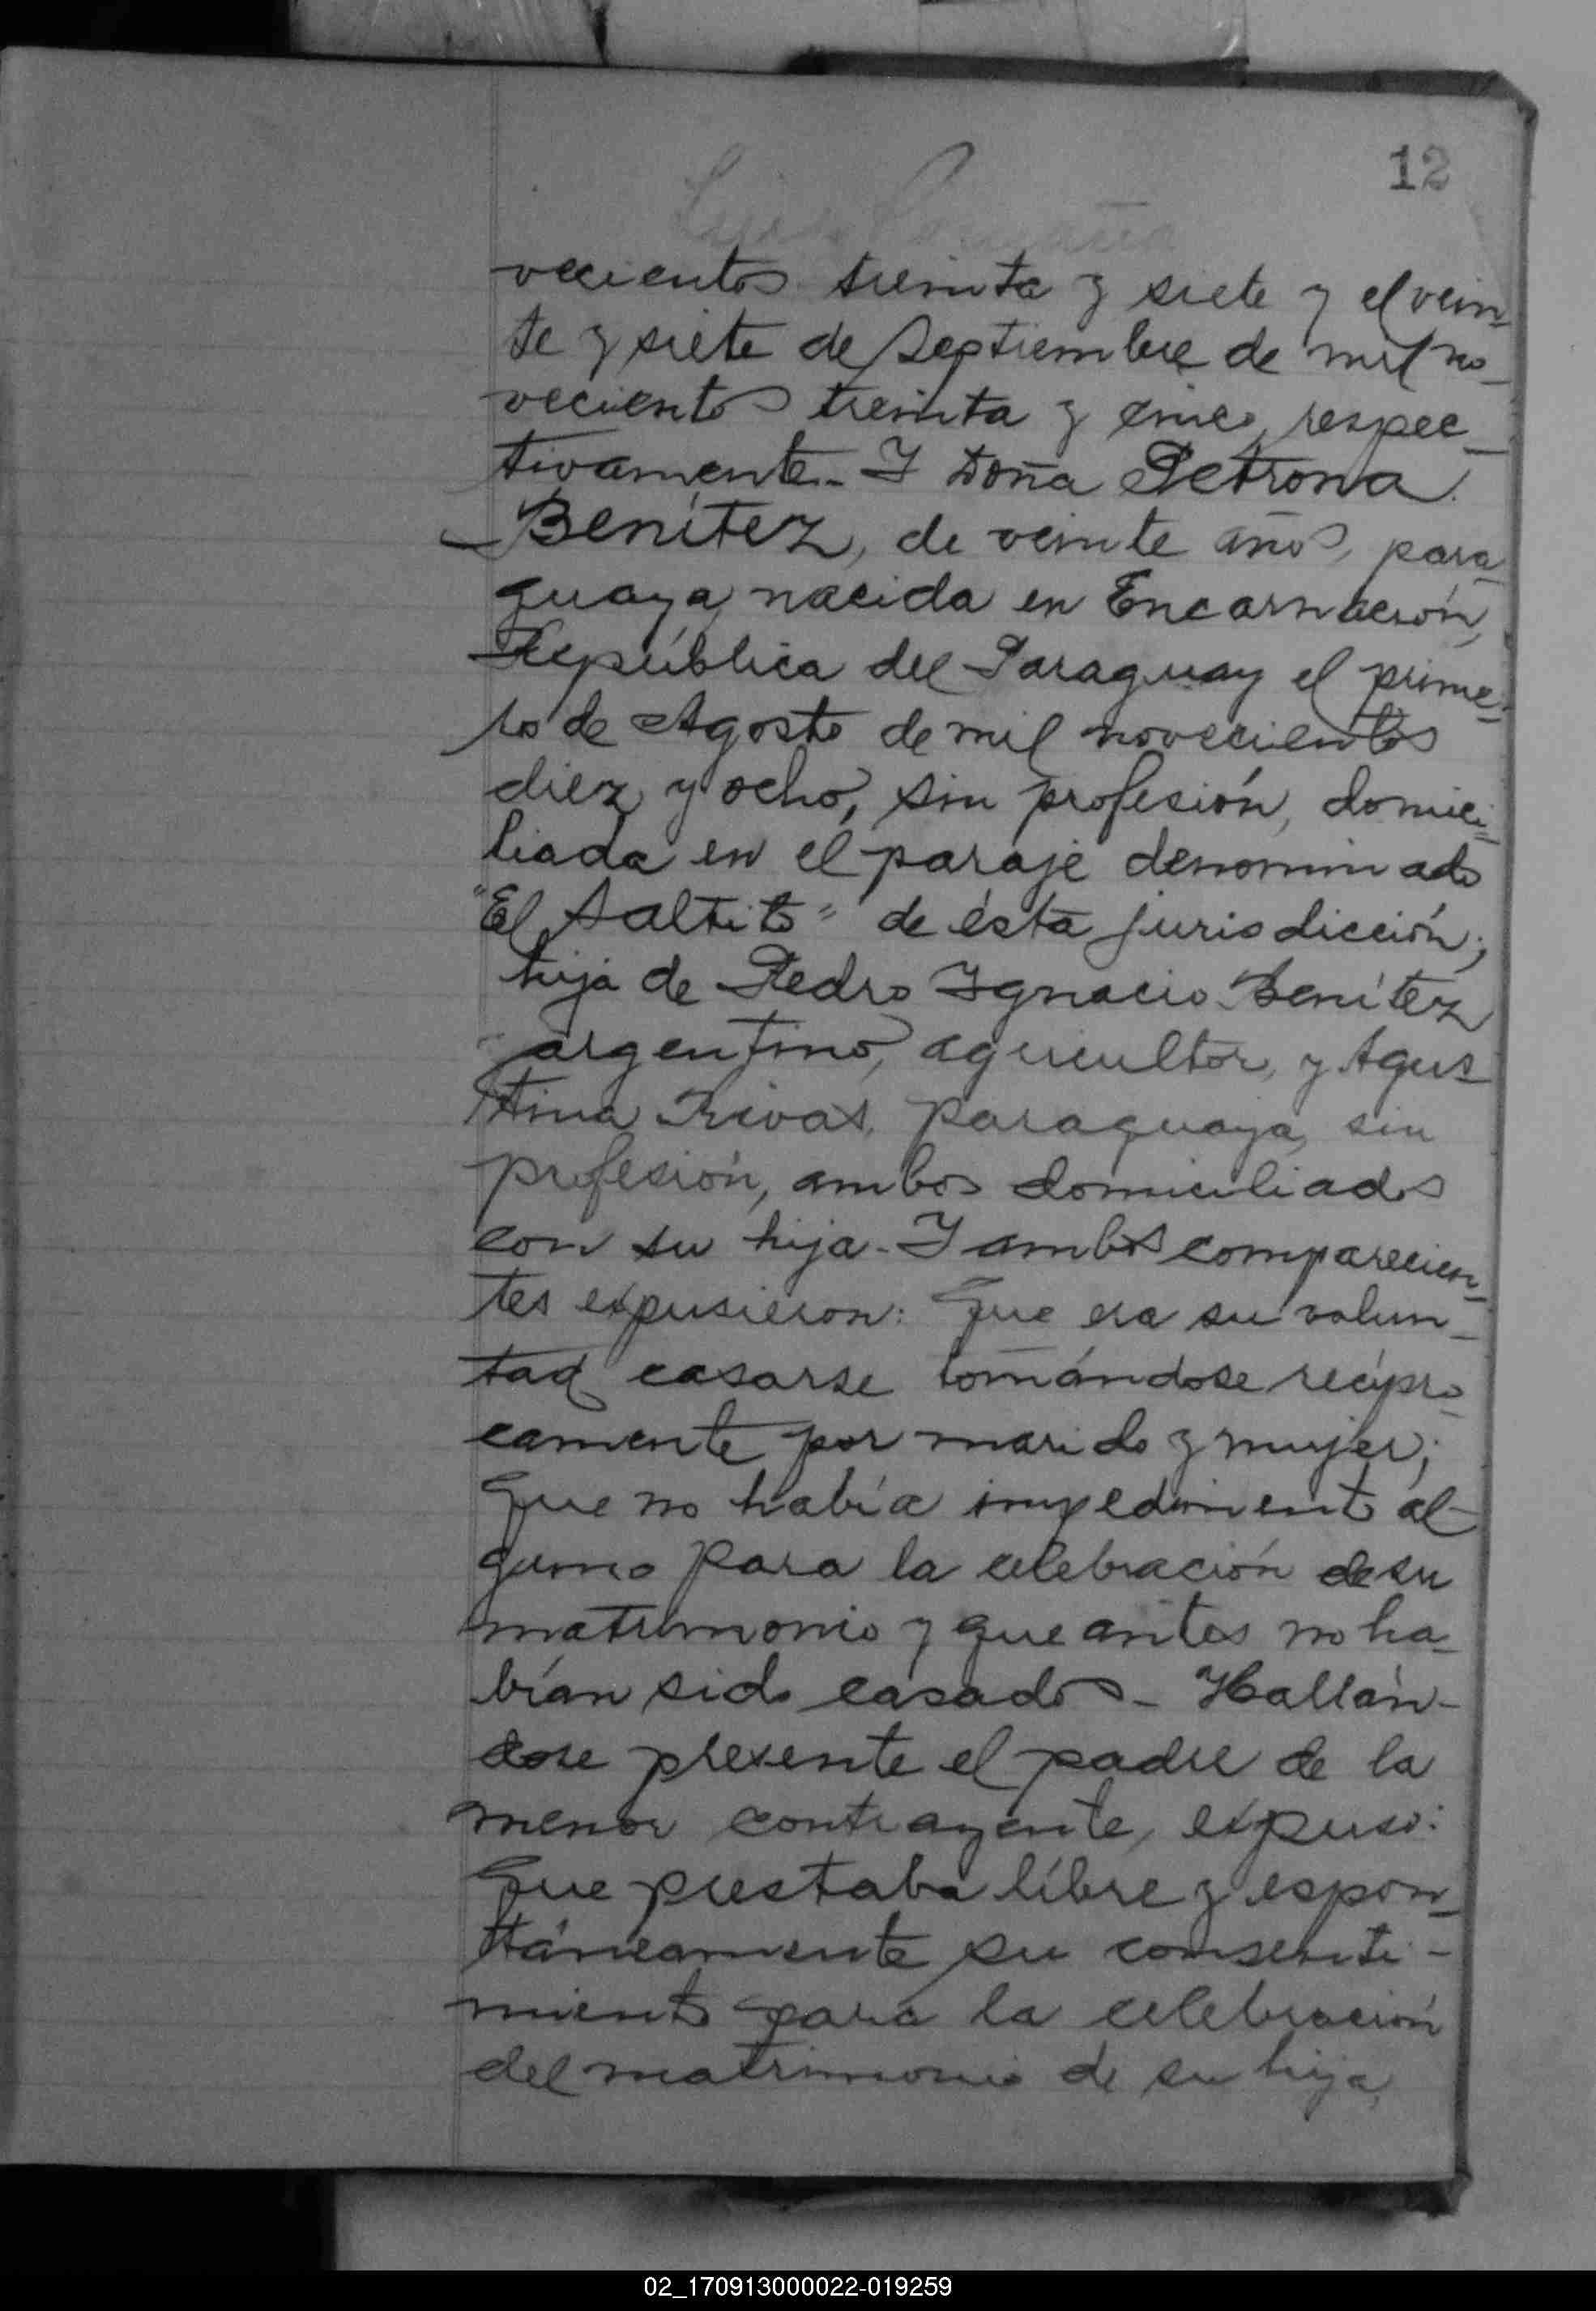 12
vecientos treinta y siete y el vein-
te y siete de Septiembre de mil no-
vecientos treinta y cinco, respec-
tivamente.- Y Doña Petrona
Benítez, de veinte años, para-
guaya, nacida en Encarnación,
República del Paraguay el prime-
ro de Agosto de mil novecientos
diez y ocho, sin profesión, domici-
liada en el paraje denominado
"El Saltito" de ésta jurisdicción;
hija de Pedro Ignacio Benítez
argentino, agricultor, y Agus-
tina Rivas, paraguaya, sin
profesión, ambos domiciliados
con su hija.- Y ambos comparecien-
tes expusieron: Que era su volun-
tad casarse tomándose recípro-
camente por marido y mujer;
Que no había impedimento al-
guno para la celebración de su
matrimonio y que antes no ha-
bían sido casados.- Hallán-
dose presente el padre de la
menor contrayente, expuso:
Que prestaba líbre y espon-
táneamente su consenti-
miento para la celebración
del matrimonio de su hija,
02_170913000022-019259